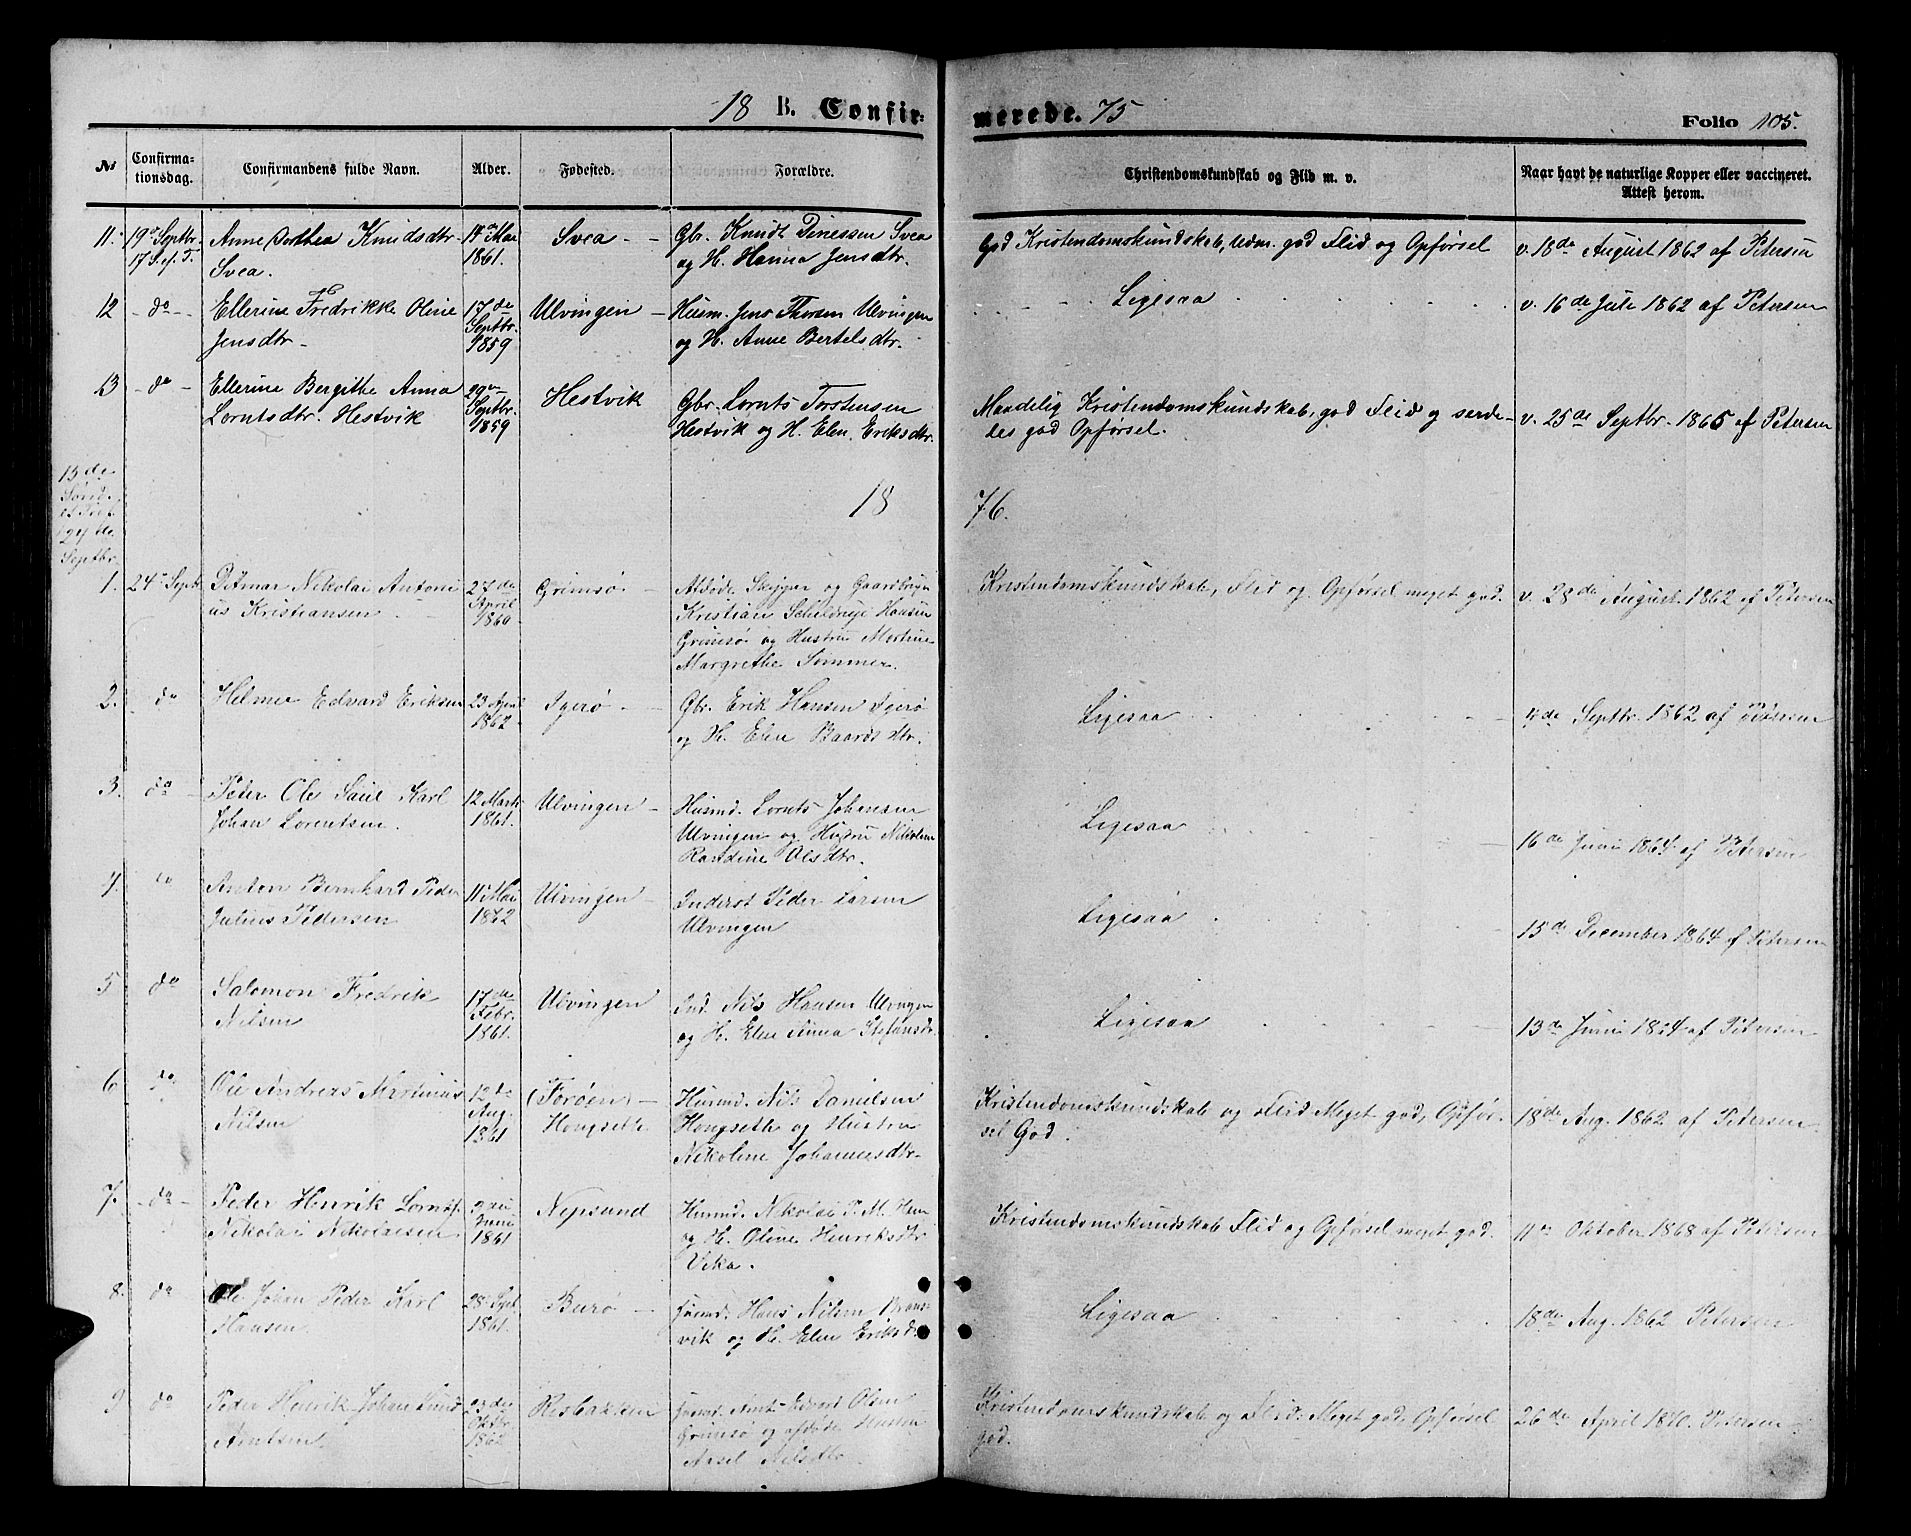 18 B. Confirmerede. 75
Folio 105.
№
Confirma-
tionsdag.
Confirmandens fulde Navn.
Alder.
Fødested.
Forældre.
Christendomskundskab og Flid m. v.
Naar havt de naturlige Kopper eller vaccineret.
Attest herom.
11. 19de Septbr. Anne Dorthea Knudsdtr. Mai Svea Gbr. Knudt Svea God Kristendomskundskab, Udm. god Flid og Opførsel v. 18de August 1862 af Petersen
17 S. ef. T. Svea. 1861. og H. Hanna Jensdtr.
12 do Ellerine Fredrikke Oline 17de Ulvingen Husm. Jens Thorsen Ulvingen Ligesaa v. 16de Juli 1862 af Petersen
Jensdtr. Septbr. og H. Anne Bertelsdtr.
1859
13 do Ellerine Bergithe Anna 29de Hestvik Gbr. Lornts Torstensen Maadelig Kristendomskundskab, god Flid og serde- v. 25de Septbr. 1865 af Petersen
Lorntsdtr. Hestvik Septbr. Hestvik og H. Elen Eriksdtr. les god Opførsel.
1859
15de
Sønd.
24de
Septbr.
18 76.
1. 24de Septbr Ditmar Nikolai Antoni 27de Grimsø Afdøde Skipper og Gaardbruger Kristendomskundskab, Flid og Opførsel meget god. v. 28de August 1862 af Petersen
us Kristiansen April Kristian Hansen
1860 Grimsø og Hustru
Margrethe Sommer.
2. do Helmer Edvard Eriksen 23 April Igerø Gbr. Erik Hansen Igerø Ligesaa 4de Septbr. 1862 af Petersen
1862 og H. Elen Baardsdtr.
3. do Peder Ole Saul Karl 12 Marts Ulvingen Husmd. Lornts Johansen Ligesaa 16de Juni 1864 af Petersen
Johan Lorentsen. 1861. Ulvingen og Hustru Nikoline
Randine Olsdtr.
4. do Anton Bernhard Peder 11 Mai Ulvingen Inderst Peder Larsen Ligesaa 15de December 1864 af Petersen
Julius Pedersen 1862 Ulvingen
5 do Salomon Fredrik 17de Ulvingen Ind. Nils Hansen Ulvingen Ligesaa 13de Juni 1864 af Petersen
Nilsen Febr. og H. Elen Anna
1861.
6 do Ole Andreas Martinus 12de (Forøen) Husmd. Nils Danielsen Kristendomskundskab og Flid Meget god, Opfør- 18de Aug. 1862 af Petersen
Nilsen Aug. Hongseth Hongseth og Hustru sel God.
1861 Nikoline Johannesdtr.
7. do Peder Henrik Lornts Nepsund Husmd. Nikolai P. M. Kristendomskundskab Flid og Opførsel meget god. 11te Oktober 1868 af Petersen
Nikolai Nikolaisen Juni og H. Oline Henriksdtr
1861 Vika.
8. do Ole Johan Peder Karl 28 Sept. Burø Hans Nilsen Brans- Ligesaa 18de Aug. 1862 Petersen
Hansen. 1861. vik og H. Elen Eriksd.
9 do Peder Henrik Johan Lund 23de Risbakken Arnt Edvard Olsen Kristendomskundskab og Flid: Meget god, Opførsel 26de April 1870. Petersen
Arntsen Oktbr. Grimsø og afdøde Hustru god.
Nilsdtr.